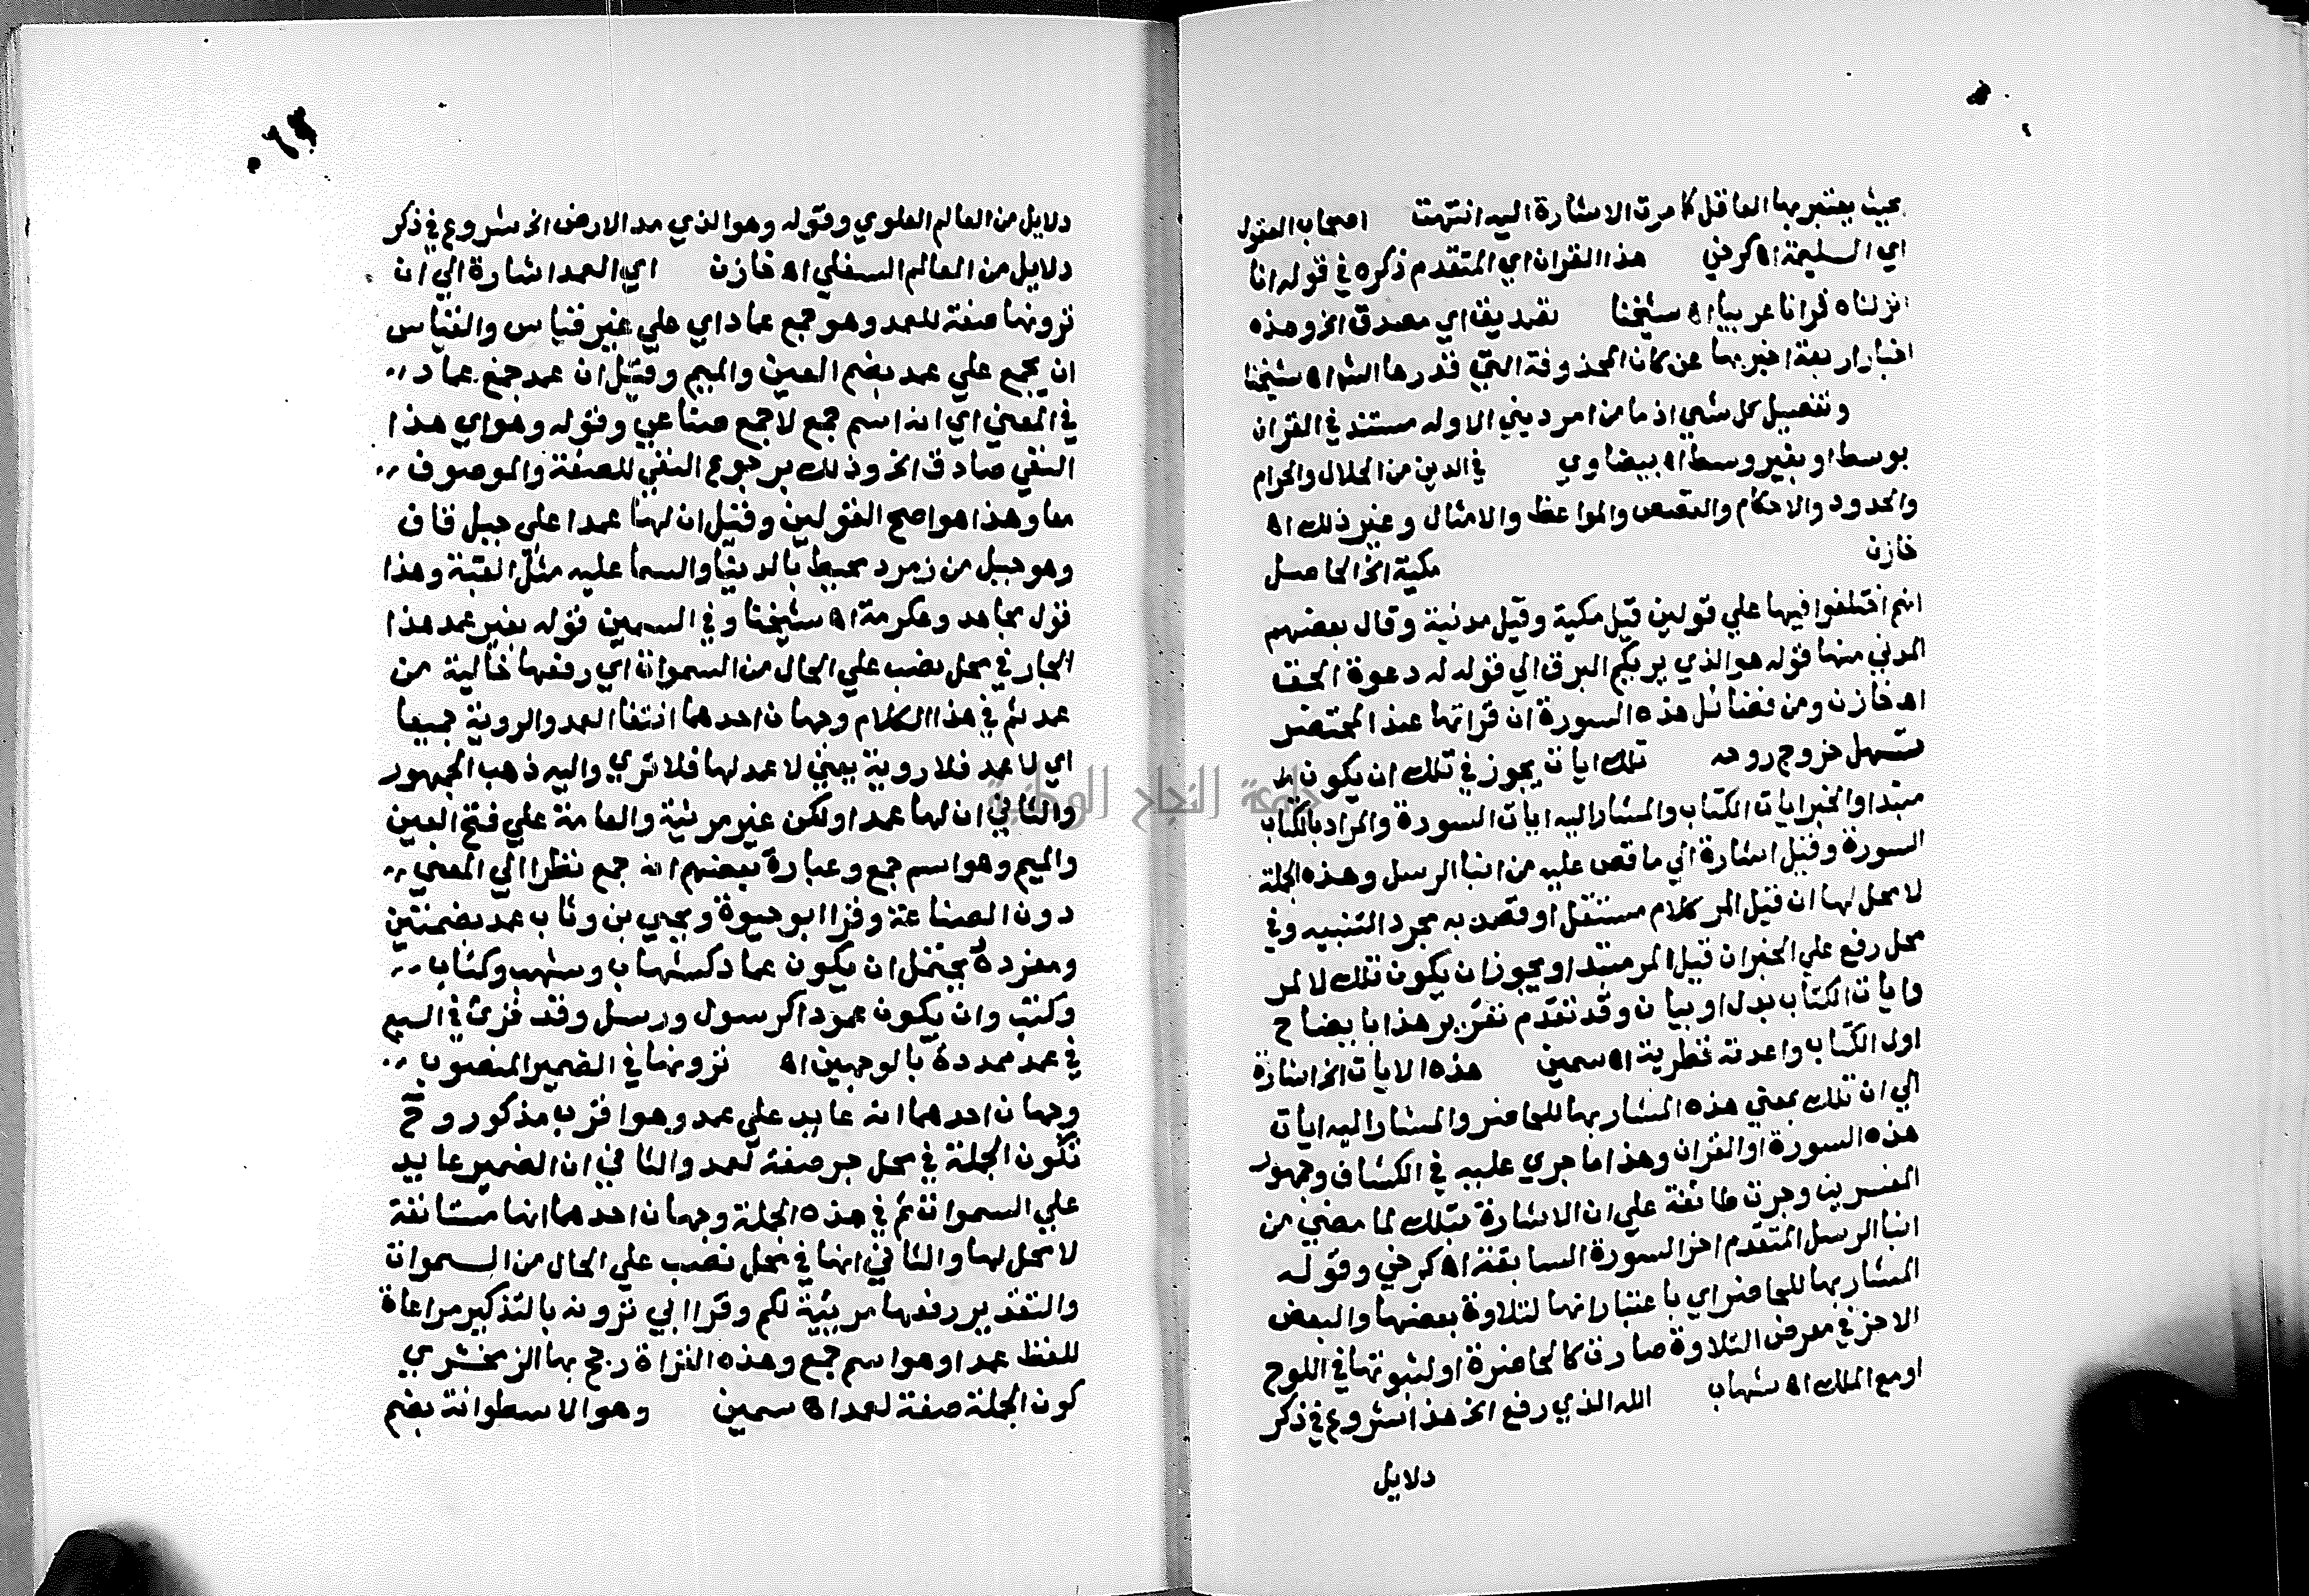 بحيث يعتبر بها العاقل كما مرت الاشارة اليه انتهت اصحاب العقول
اي السليمة اه كرخي هذا القران اي المتقدم ذكره في قوله انا
انزلناه قرانا عربيا اه شيخنا تصديق اي مصدق الخ وهذه
اخبار اربعة اخبر بها عن كان المحذوفة التي قدرها الش اه شيخنا
وتفصيل كل شي اذ ما من امر ديني الا وله مستند في القران
بوسط او بغير وسط اه بيضاوي في الدين من الحلال والحرام
والحدود والاحكام والقصص والمواعظ والامثال وغير ذلك اه
خازن مكية الخ الحاصل
انهم اختلفوا فيها علي قولين قيل مكية وقيل مدنية وقال بعضهم
المدني منها قوله هو الذي يريكم البرق الي قوله له دعوة الحق
اه خازن ومن فضائل هذه السورة ان قراتها عند المحتضر
تسهل خروج روحه تلك ايات يجوز في تلك ان يكون
مبتدا والخبر ايات الكتاب والمشار اليه ايات السورة والمراد بالكتاب
السورة وقيل اشارة الي ما قص عليه من انبا الرسل وهذه الجملة
لا محل لها ان قيل المر كلام مستقل او قصد به مجرد التنبيه وفي
محل رفع علي الخبر ان قيل المر مبتدا ويجوز ان يكون تلك لالمر
وايات الكتاب بدل او بيان وقد تقدم تقرير هذا بايضاح
اول الكتاب واعدته نظرية اه سمين هذه الايات الخ اشارة
الي ان تلك بمعني هذه المشار بها للحاضر والمشار اليه ايات
هذه السورة او القران وهذا ما جري عليه في الكشاف وجمهور
المفسرين وجرت طائفة علي ان الاشارة بتلك لما مضي من
انبا الرسل المتقدم اخر السورة السابقة اه كرخي وقوله
المشار بها للحاضر اي باعتبار انها لتلاوة بعضها والبعض
الاخر في معرض التلاوة صارت كالحاضرة او لثبوتها في اللوح
او مع الملك اه شهاب الله الذي رفع الخ هذا شروع في ذكر
دلايل
دلايل من العالم العلوي وقوله وهو الذي مد الارض الخ شروع في ذكر
دلايل من العالم السفلي اه خازن اي العمد اشارة الي ان
ترونها صفة للعمد وهو جمع عماد اي علي غير قياس والقياس
ان يجمع علي عمد بضم العين والميم وقيل ان عمد جمع عماد
في المعني اي انه اسم جمع لا جمع صناعي وقوله وهو اي هذا
النفي صادق الخ وذلك برجوع النفي للصفة والموصوف
معا وهذا هو اصح القولين وقيل ان لها عمدا علي جبل قاف
وهو جبل من زمرد محيط بالدنيا والسما عليه مثل القبة وهذا
قول مجاهد وعكرمة اه شيخنا وفي السمين قوله بغير عمد هذا
الجار في محل نصب علي الحال من السموات اي رفعها خالية من
عمد ثم في هذا الكلام وجهان احدهما انتفا العمد والروية جميعا
اي لا عمد فلا روية يعني لا عمد لها فلا تري واليه ذهب الجمهور
والثاني ان لها عمدا ولكن غير مرئية والعامة علي فتح العين
والميم وهو اسم جمع وعبارة بعضهم انه جمع نظرا الي المعني
دون الصناعة وقرا ابو حيوة ويحيي بن وثاب عمد بضمتين
ومفرده يحتمل ان يكون عماد كشهاب وشهب وكتاب
وكتب وان يكون عمودا كرسول ورسل وقد قرئ في السبع
في عمد ممددة بالوجهين اه ترونها في الضمير المنصوب
وجهان احدهما انه عايد علي عمد وهو اقرب مذكور وح
تكون الجملة في محل جر صفة لعمد والثاني ان الضمير عايد
علي السموات ثم في هذه الجملة وجهان احدهما انها مستانفة
لا محل لها والثاني انها في محل نصب علي الحال من السموات
والتقدير رفعها مريئة لكم وقرا ابي ترونه بالتذكير مراعاة
للفظ عمد اذ هو اسم جمع وهذه القراة رجح بها الزمخشري
كون الجملة صفة لعمد اه سمين وهو الاسطوانة بضم
جامعة النجاح الوطنية